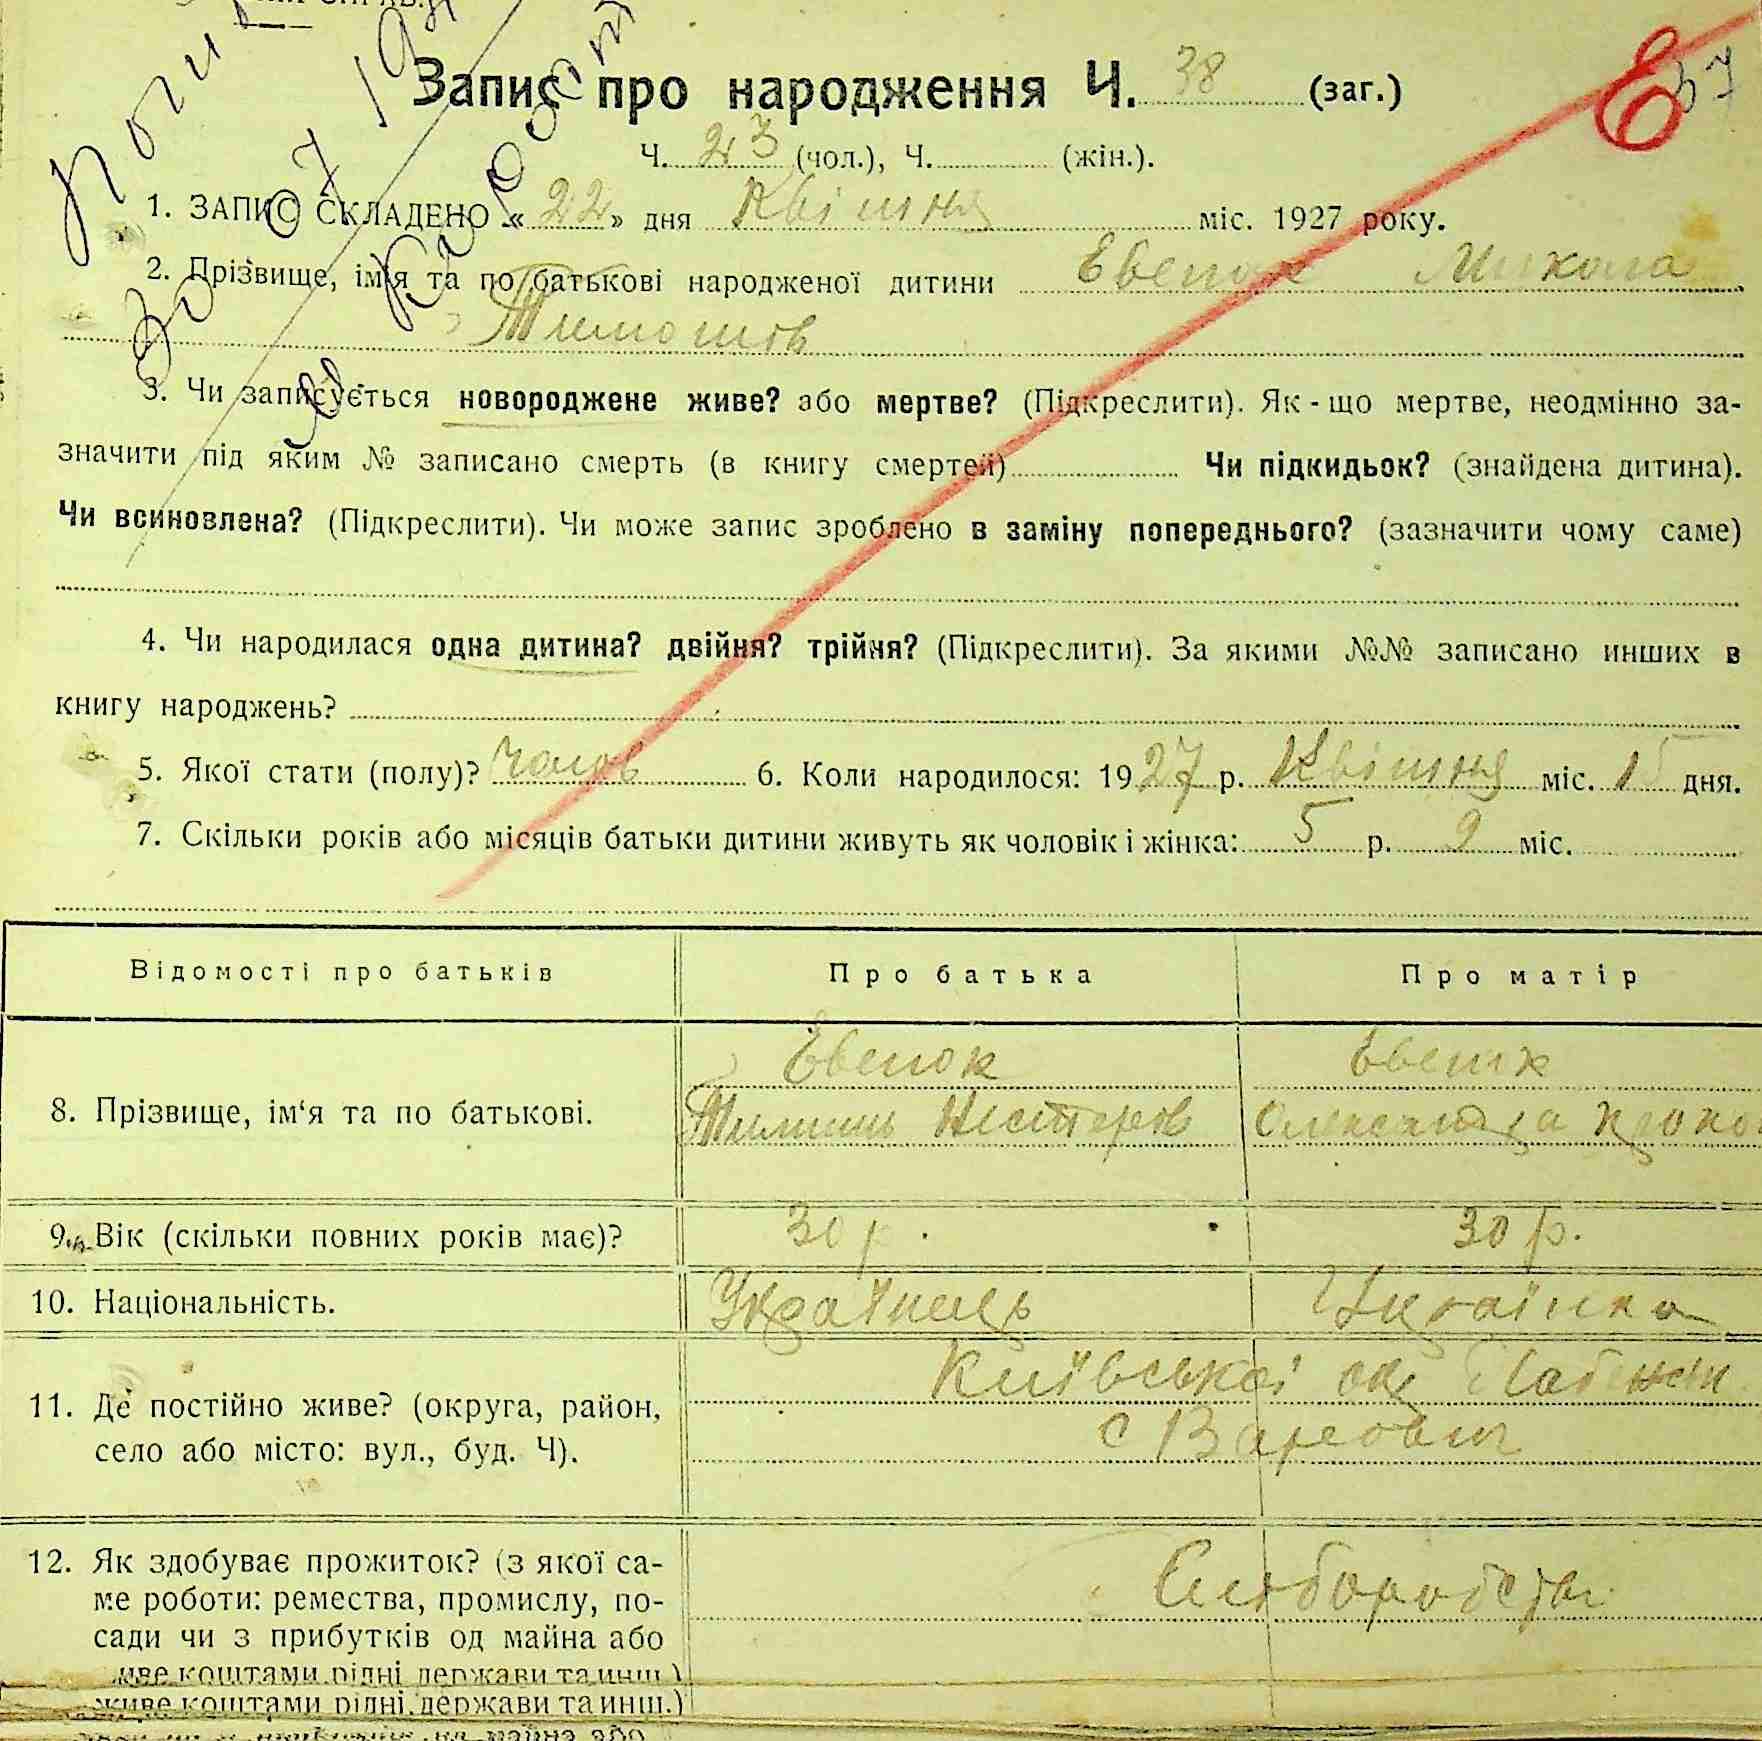 Запис про народження Ч. 38 (заг.)
37
Ч. 23 (чол.), Ч. (жін.).
1. ЗАПИС СКЛАДЕНО «22» дня Квітня міс. 1927 року.
2. Прізвище, ім'я та по батькові народженої дитини Евенок Микола
Тимошів
3. Чи записується новороджене живе? або мертве? (Підкреслити). Як-що мертве, неодмінно за-
значити під яким № записано смерть (в книгу смертей) Чи підкидьок? (знайдена дитина).
Чи всиновлена? (Підкреслити). Чи може запис зроблено в заміну попереднього? (зазначити чому саме)
4. Чи народилася одна дитина? двійня? трійня? (Підкреслити). За якими №№ записано инших в
книгу народжень?
5. Якої стати (полу)? Чолов 6. Коли народилося: 1927 р. Квітня міс. 15 дня.
7. Скільки років або місяців батьки дитини живуть як чоловік і жінка: 5 р. 9 міс.
Відомості про батьків Про батька Про матір
Евенок
8. Прізвище, ім'я та по батькові.
Тимиш Нестеров Олександра
9. Вік (скільки повних років має)? 30 р. 30 р.
10. Національність. Українець Українка
Київської ок
11. Де постійно живе? (округа, район,
с Варовичі
село або місто: вул., буд. Ч).
12. Як здобуває прожиток? (з якої са-
ме роботи: ремества, промислу, по-
сади чи з прибутків од майна або
живе коштами рідні, держави та инш.)
живе коштами рідні, держави та инш.)